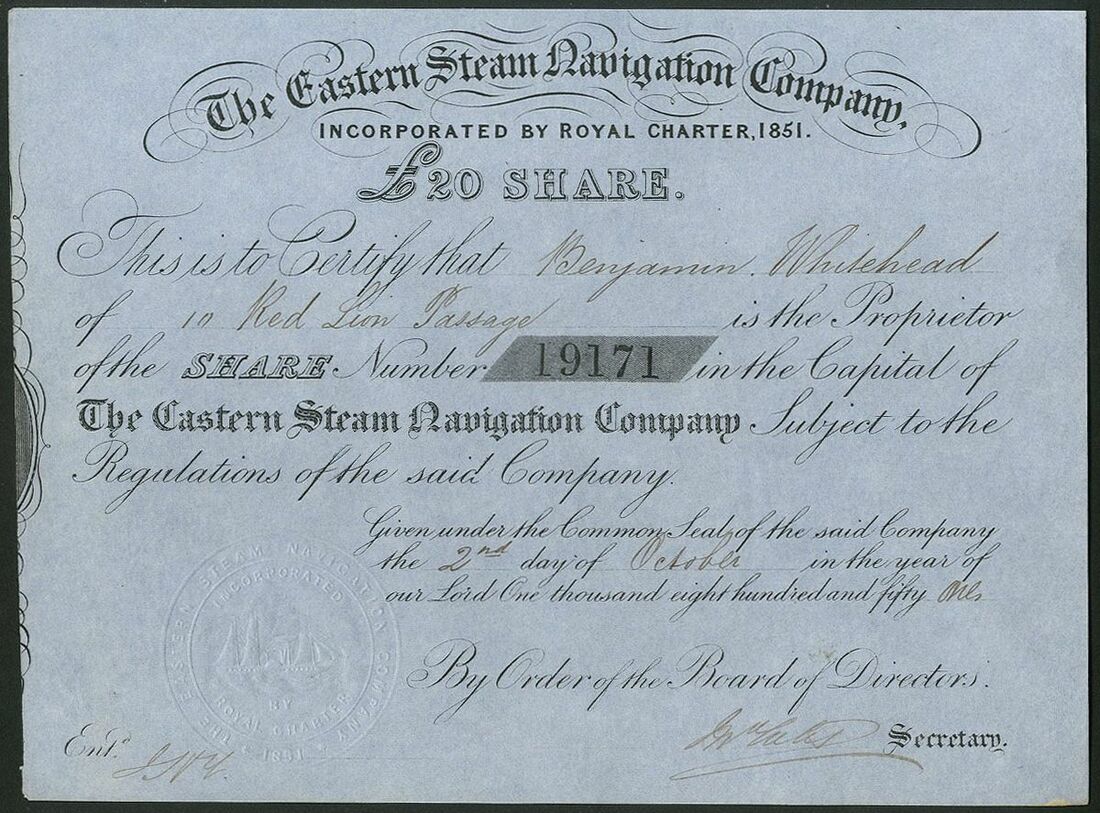 The Eastern Steam Navigation Company.
INCORPORATED BY ROYAL CHARTER, 1851.
£20 SHARE.
This is to Certify that Benjamin Whitehead
of 10 Red Lion Passage is the Proprietor
of the SHARE Number 19171 in the Capital of
The Eastern Steam Navigation Company Subject to the
Regulations of the said Company.
Given under the Common Seal of the said Company
the 2nd day of October in the year of
our Lord One thousand eight hundred and fifty One
THE EASTERN STEAM NAVIGATION COMPANY
INCORPORATED
BY
ROYAL CHARTER
1851
By Order of the Board of Directors.
Entd.
Secretary.